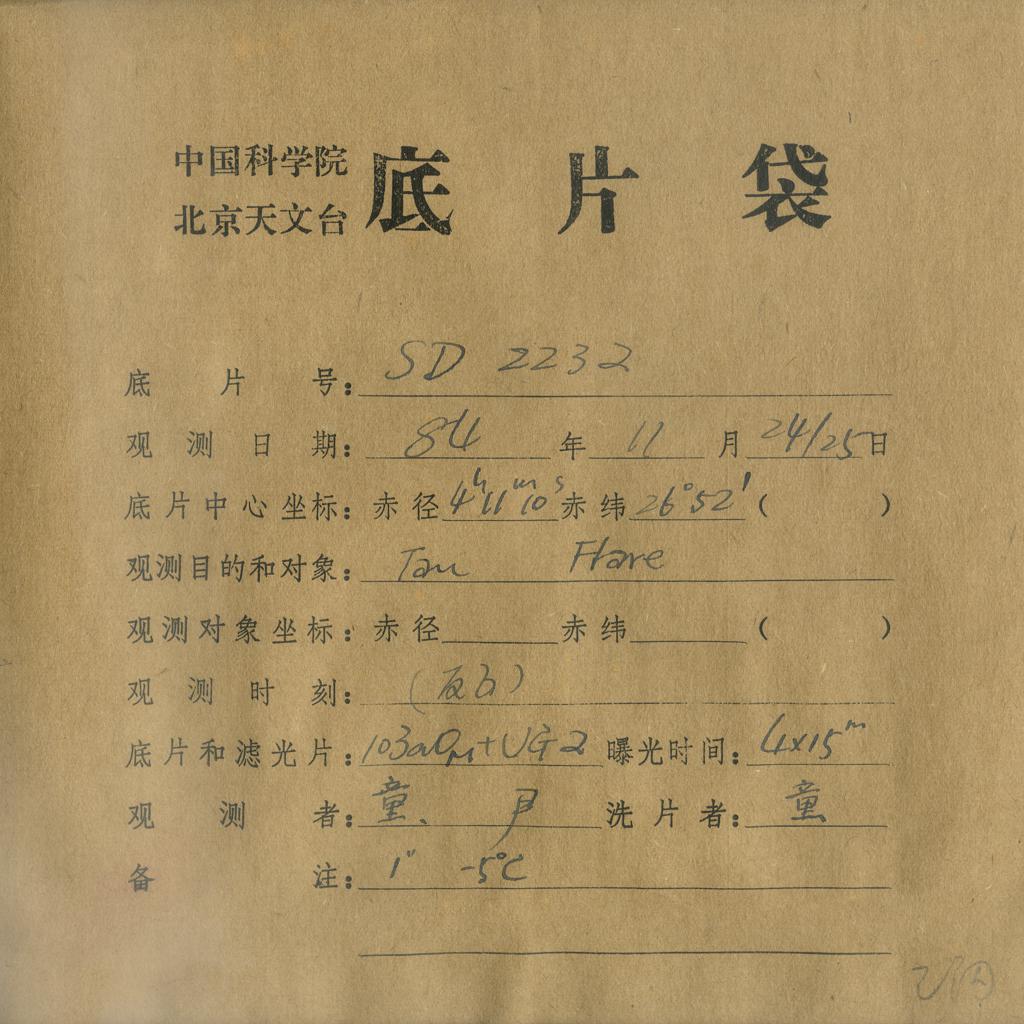 中国科学院
北京天文台
底片袋
底片号：SD 2232
观测日期：84年11月24/25日
底片中心坐标：赤径4h11m10s赤纬26°52′（ ）
观测目的和对象：Tau Flare
观测对象坐标：赤径 赤纬 （ ）
观测时刻：
底片和滤光片：103aO+UG2 曝光时间：4x15m
观测者：童、尹 洗片者：童
备注：1″ -5℃